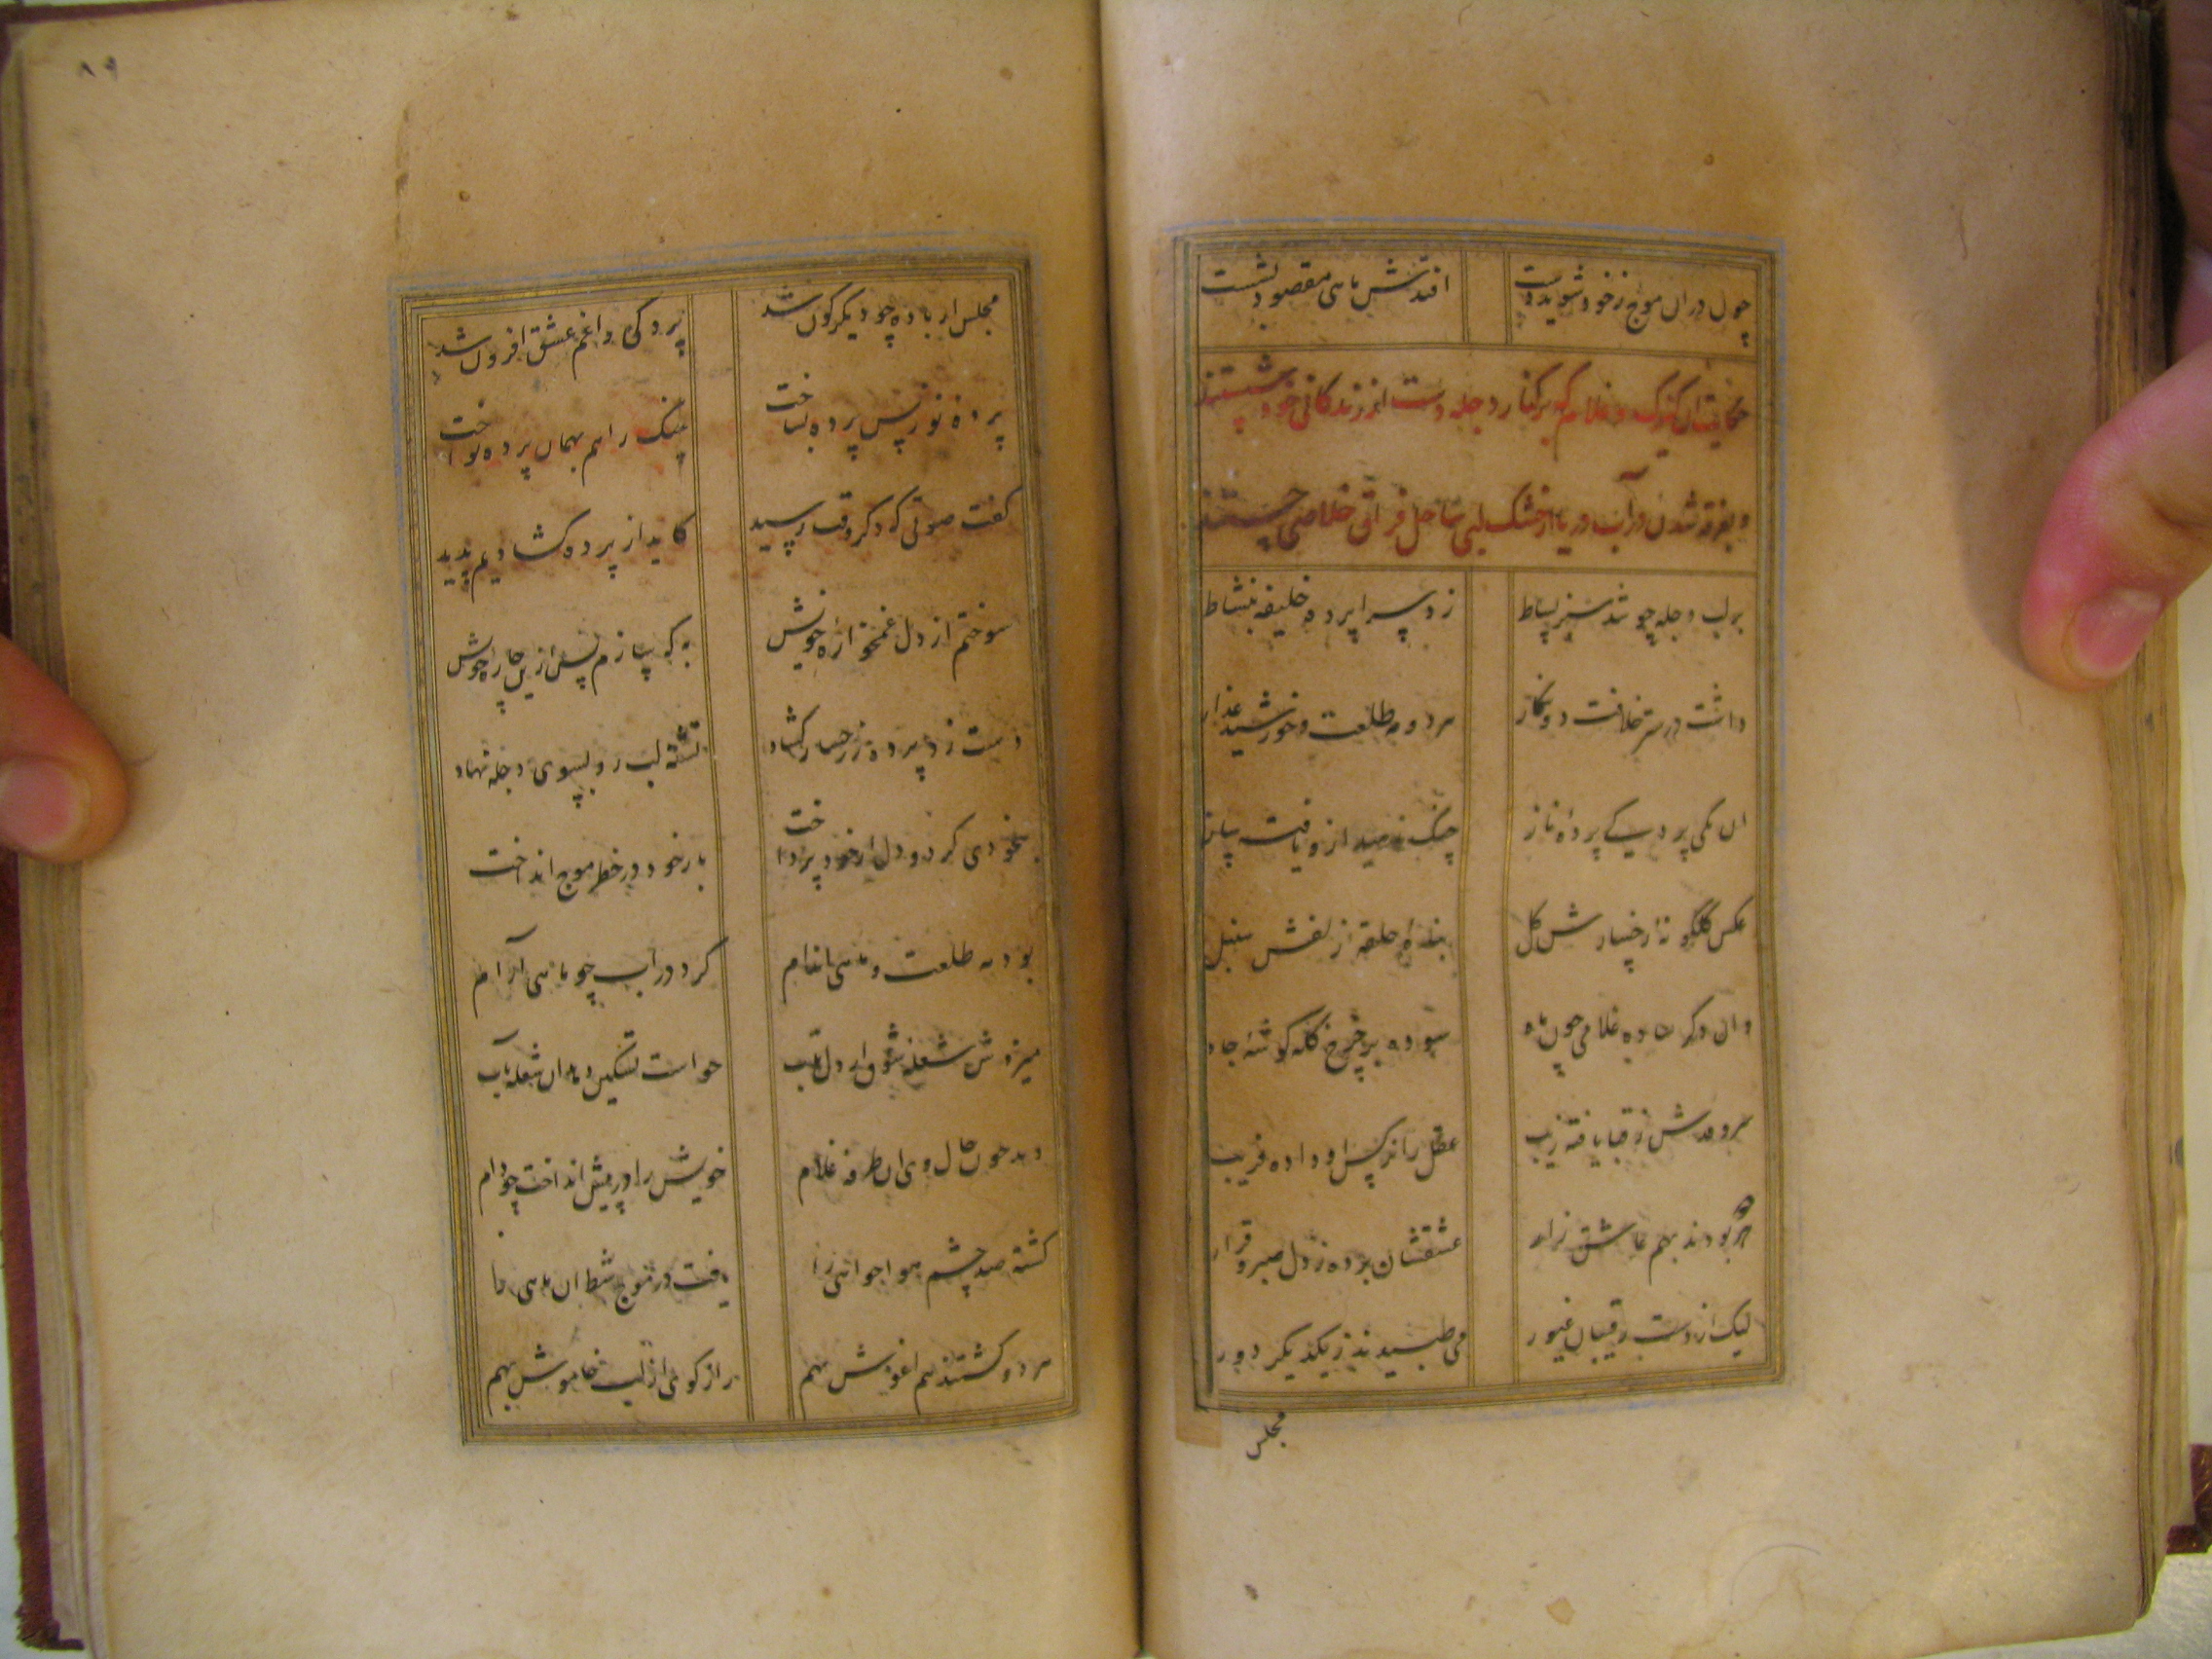 چون دران موج ز خود شوید دست افتدش ماهی مقصود بشست
حکایت ان کنیزک و غلام که بر کنار دجله دست از زندگانی خود شستند
و بغرقه شدن در آب دریا از خشک لبی ساحل فراق خلاصی جستند
بر لب دجله چو شد سبز بساط زد سراپرده خلیفه بنشاط
داشت در ستر خلافت دو نگار هر دو مه طلعت و خورشید عذار
ان یکی پردگی پرده ناز چنگ ناهید ازو یافت بساز
عکس گلگونه رخسارش گل بنده حلقه زلفش سنبل
وان دگر ساده غلامی چون ماه سوده بر چرخ کله گوشه جاه
سرو قدش ز قبا یافته زیب عقل را نرگس او داده فریب
هر دو بودند بهم عاشق زار عشقشان برده ز دل صبر و قرار
لیک از دست رقیبان غیور می طپیدند ز یکدیگر دور
مجلس
۸۹
مجلس از باده چو دیگرگون شد پردگی را غم عشق افزون شد
پرده نو ز پس پرده بساخت چنگ را هم بهمان پرده نواخت
گفت صوتی که دگر وقت رسید کاید از پرده گشادیم پدید
سوختم از دل غمخواره خویش به که سازم پس ازین چاره خویش
دست زد پرده ز رخسار گشاد تشنه لب رو بسوی دجله نهاد
بیخودی کرد و دل از خود پرداخت بار خود در خطر موج انداخت
بود مه طلعت و ماهی اندام کرد در آب چو ماهی آرام
میزدش شعله شوق از دل تاب خواست تسکین دهد ان شعله بآب
دید چون حال وی ان طرفه غلام خویش را در پیش انداخت چو دام
گشته صد چشم هوا جوانی را یافت در موج شط ان ماهی را
هر دو گشتند هم اغوش بهم راز گوی از لب خاموش بهم